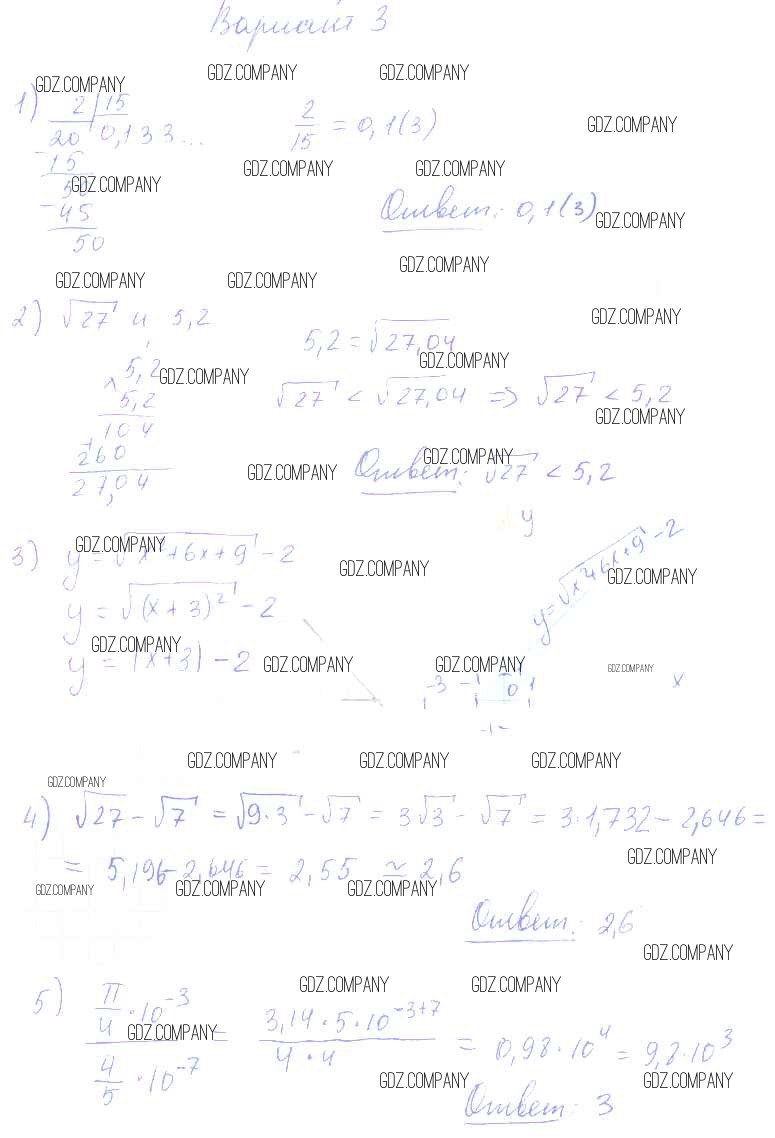 Вариант 3
GDZ.COMPANY GDZ.COMPANY GDZ.COMPANY
1) 2 | 15
20 0,133...
2/15 = 0,1(3)
GDZ.COMPANY
-15
50
GDZ.COMPANY GDZ.COMPANY GDZ.COMPANY
-45
50
Ответ: 0,1(3)
GDZ.COMPANY
GDZ.COMPANY GDZ.COMPANY GDZ.COMPANY
2) √27 и 5,2
GDZ.COMPANY
5,2 = √27,04
× 5,2
5,2
GDZ.COMPANY GDZ.COMPANY
√27 < √27,04 => √27 < 5,2
104
+
260
27,04
GDZ.COMPANY
GDZ.COMPANY GDZ.COMPANY
Ответ: √27 < 5,2
y
3) y = √x²+6x+9 - 2
GDZ.COMPANY GDZ.COMPANY GDZ.COMPANY
y = √x²+6x+9 - 2
y = √(x+3)² - 2
y = |x+3| - 2
GDZ.COMPANY GDZ.COMPANY GDZ.COMPANY GDZ.COMPANY
-3 -1 0 1 x
GDZ.COMPANY GDZ.COMPANY GDZ.COMPANY
GDZ.COMPANY
4) √27 - √7 = √9·3 - √7 = 3√3 - √7 = 3·1,732 - 2,646 =
= 5,196 - 2,646 = 2,55 ≈ 2,6
GDZ.COMPANY
GDZ.COMPANY GDZ.COMPANY GDZ.COMPANY
Ответ: 2,6
GDZ.COMPANY
GDZ.COMPANY GDZ.COMPANY
5) (π/4 · 10⁻³)/(4/5 · 10⁻⁷) = (3,14·5·10⁻³⁺⁷)/(4·4) = 0,98·10⁴ = 9,8·10³
GDZ.COMPANY
GDZ.COMPANY GDZ.COMPANY
Ответ: 3